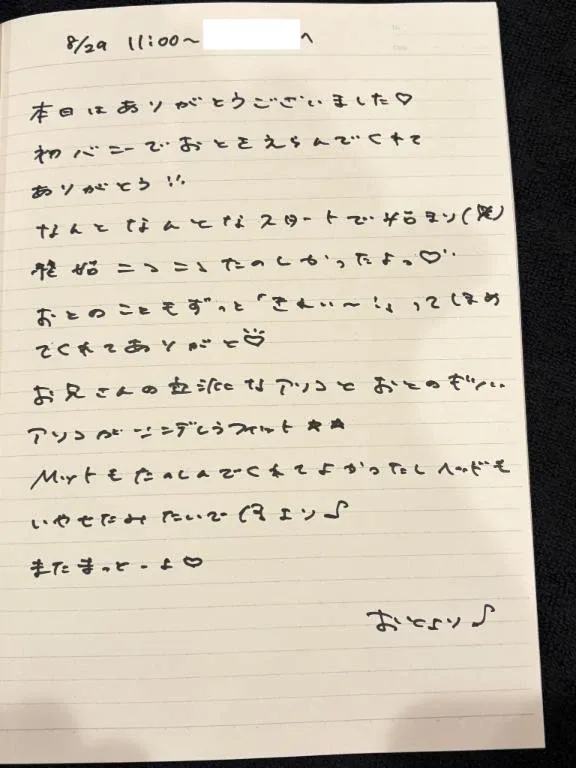 8/29 11:00~ へ
本日はありがとうございました♡
初バニーでおとをえらんでくれて
ありがとう!!
なんとなんとなスタートで始まり(笑)
終始ニコニコたのしかったよっ♡
おとのことをずっと「きれい〜!」ってほめ
てくれてありがと♡
お兄さんの立派なアソコとおとの
アソコがシンデレラフィット★★
マットもたのしんでくれてよかったしベッドも
いやせたみたいで ♪
またまっとーよ♡
おとより♪